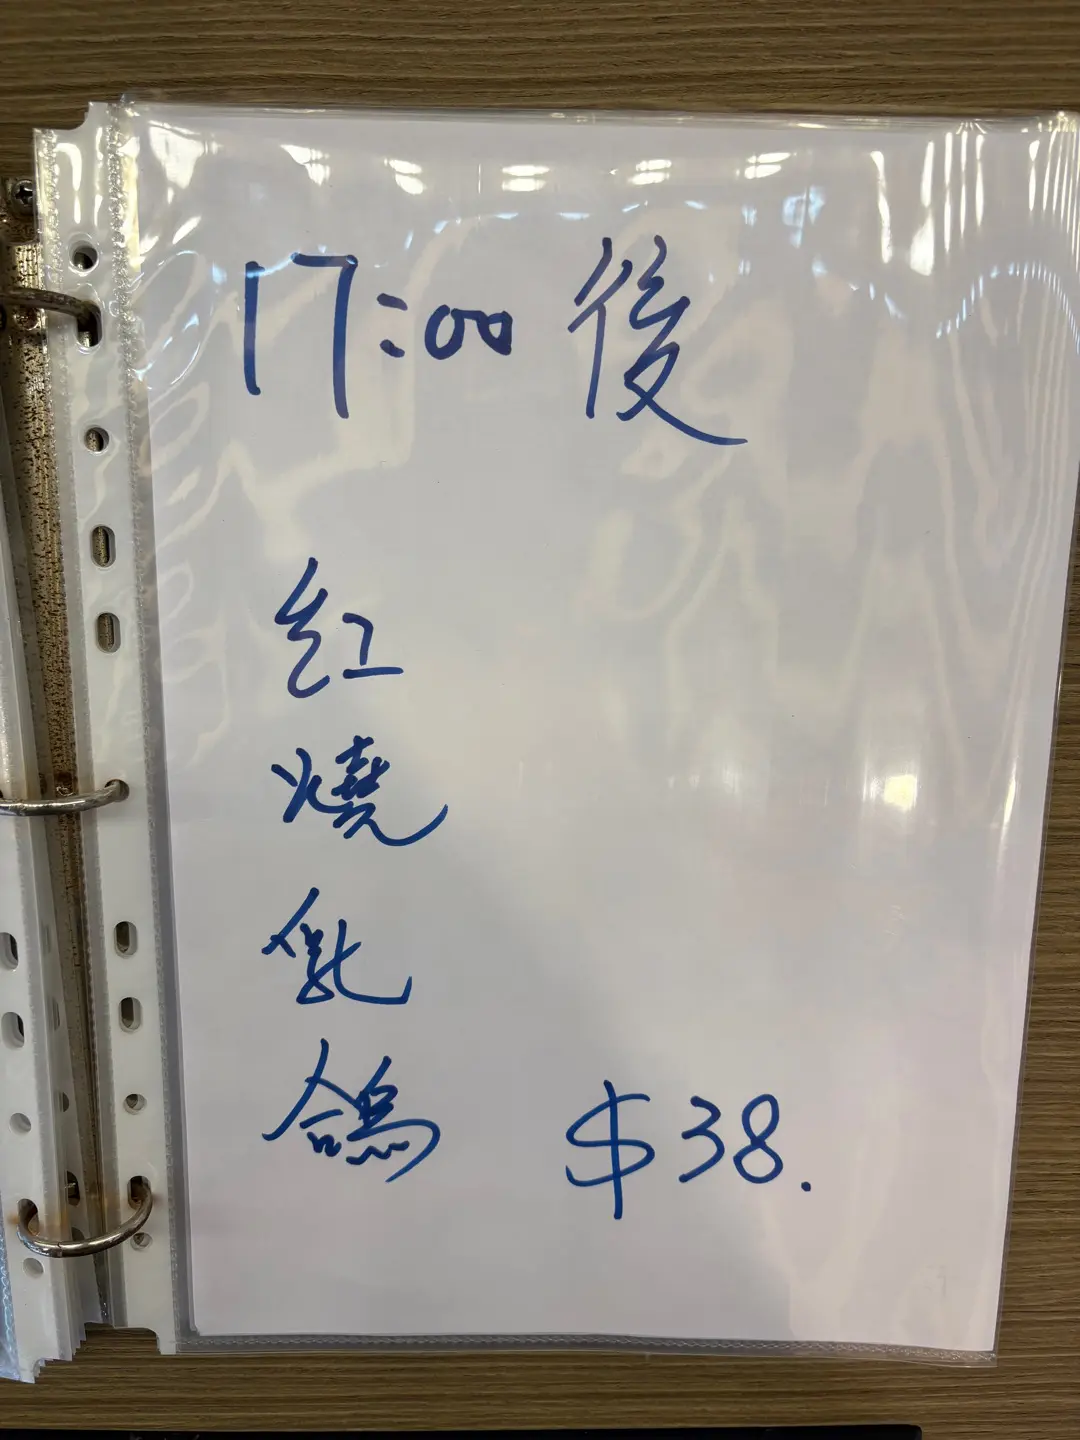 17:00 後
紅燒乳鴿 $38.